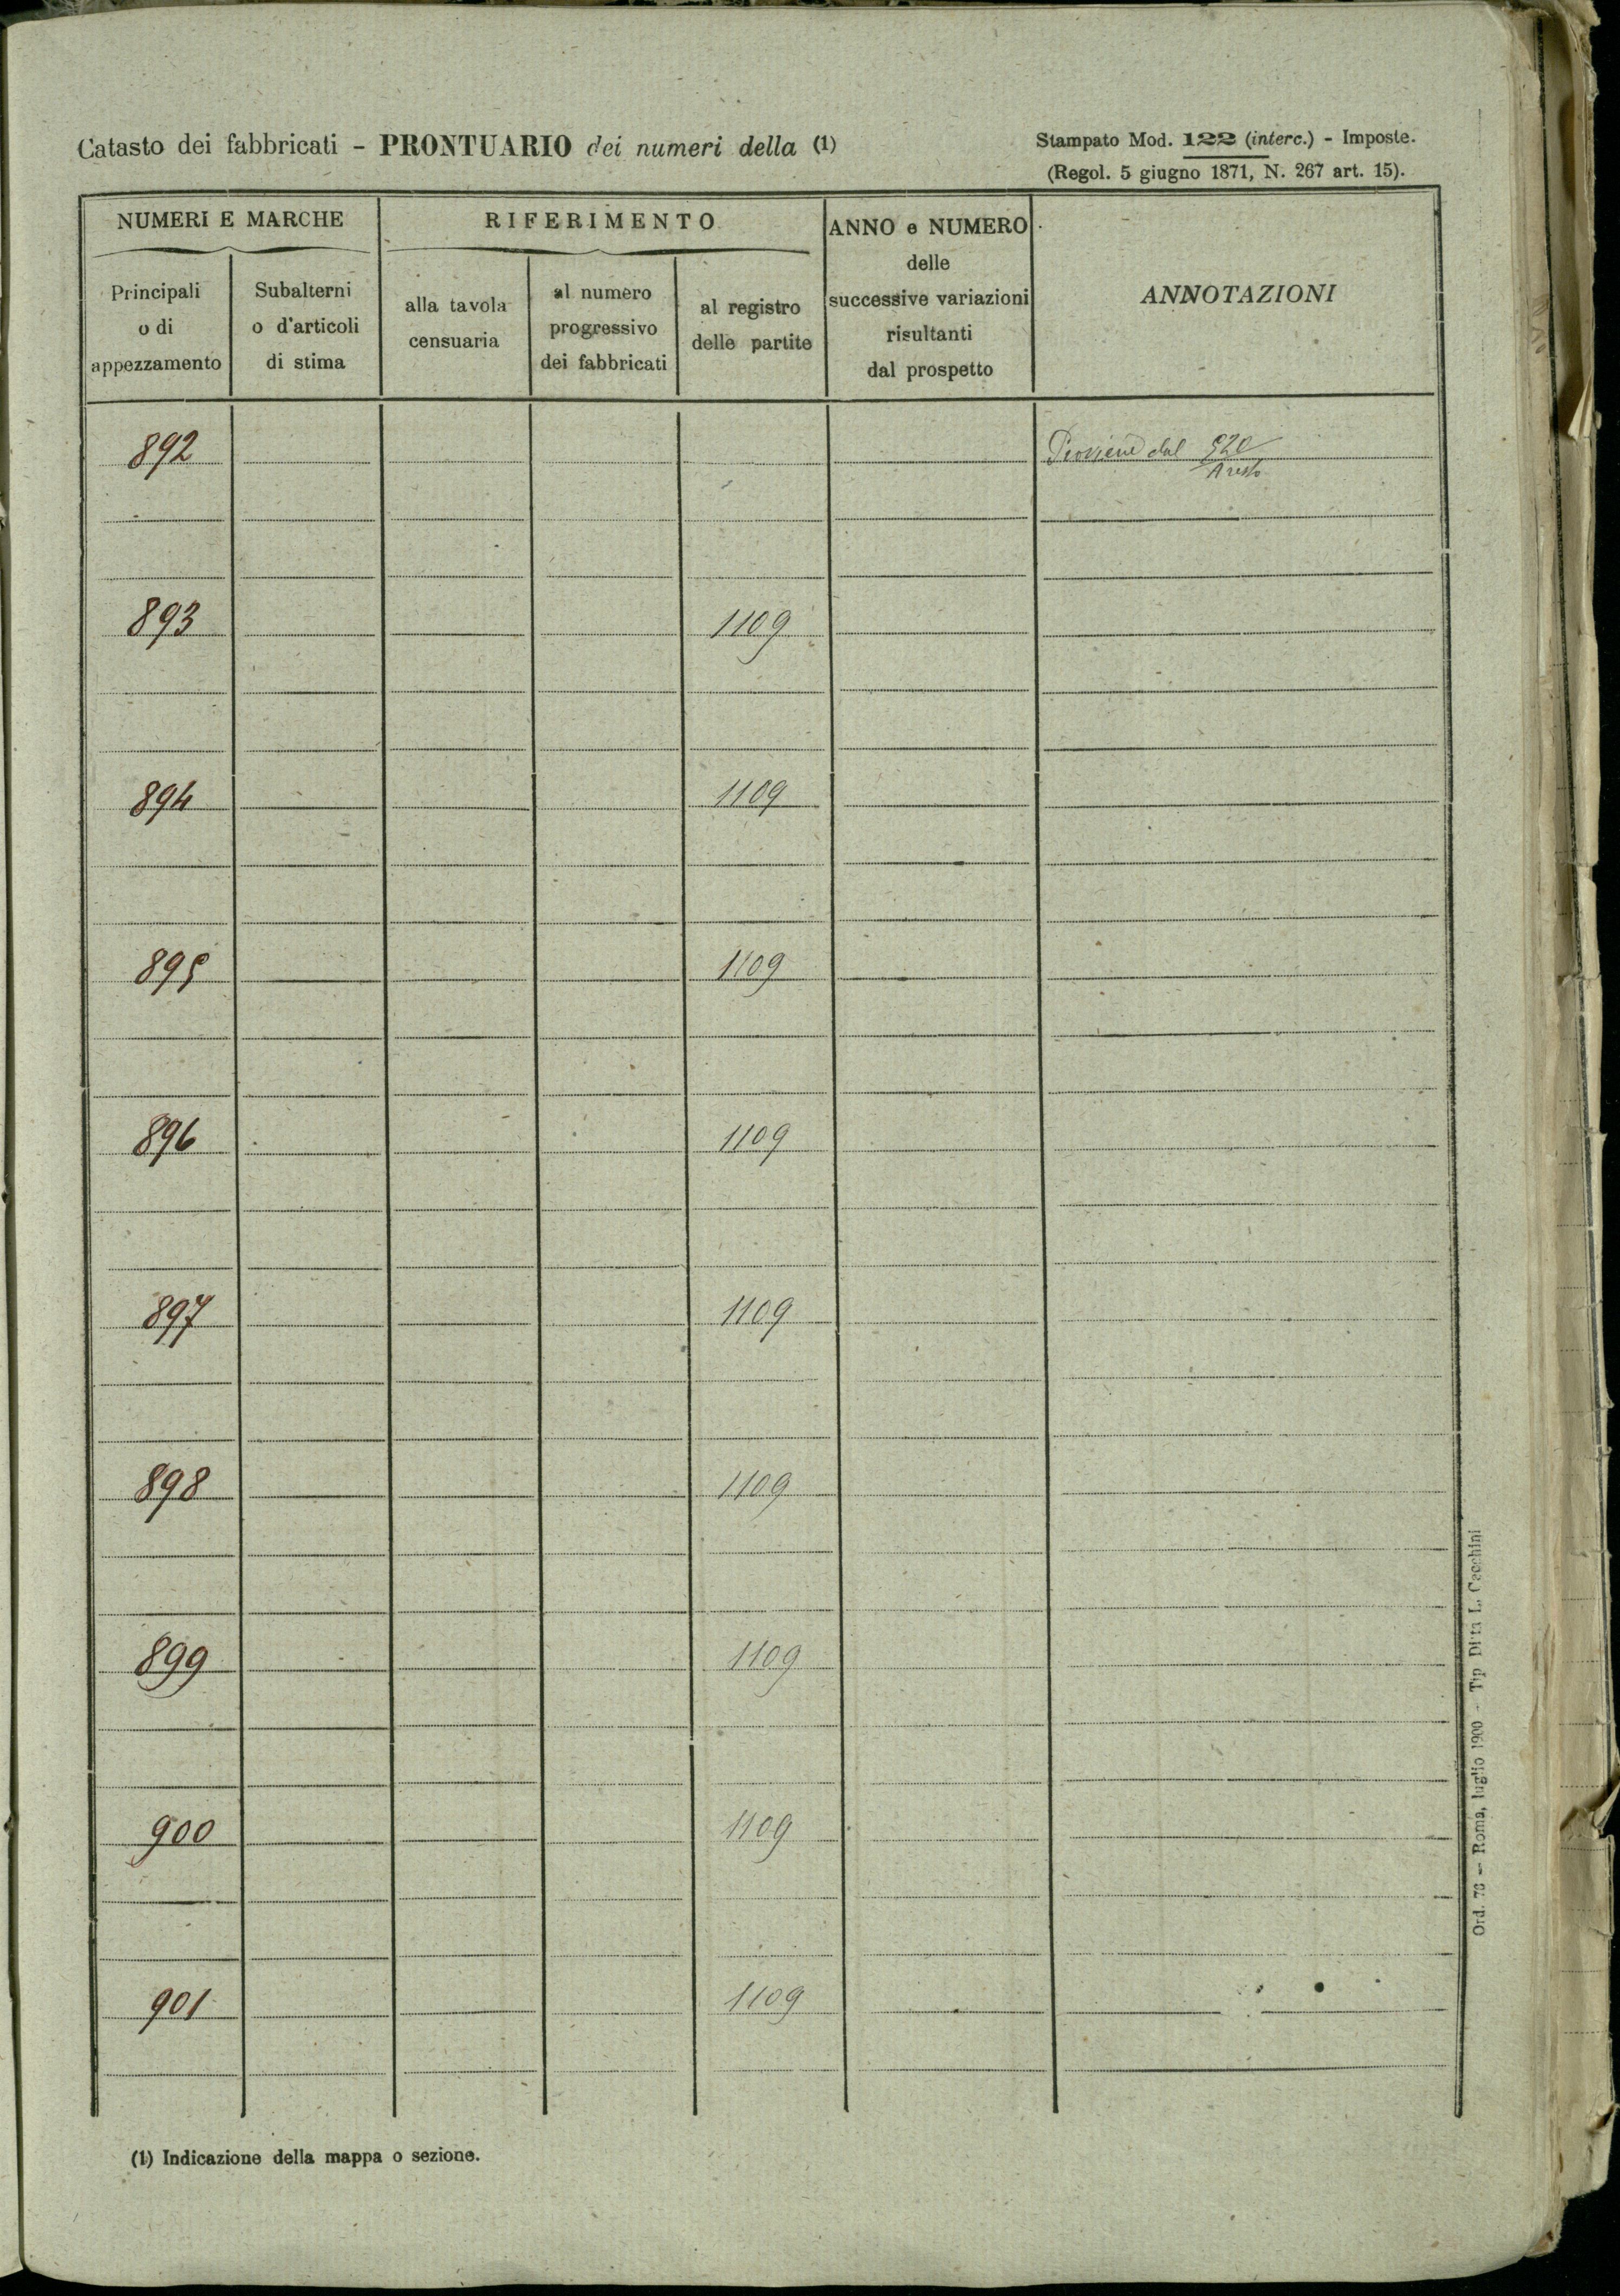 Catasto dei fabbricati - PRONTUARIO dei numeri della (1)
Stampato Mod. 122 (interc.) - Imposte.
(Regol. 5 giugno 1871, N. 267 art. 15).
NUMERI E MARCHE
RIFERIMENTO
ANNO e NUMERO
delle
successive variazioni
risultanti
dal prospetto
ANNOTAZIONI
Principali
o di
appezzamento
Subalterni
o d'articoli
di stima
alla tavola
censuaria
al numero
progressivo
dei fabbricati
al registro
delle partite
892 dal
893 1109
894 1109
895 1109
896 1109
897 1109
898 1109
899 1109
900 1109
901 1109
(1) Indicazione della mappa o sezione.
Ord. 78 — Roma, luglio 1900 - Tip Ditta L. Cecchini